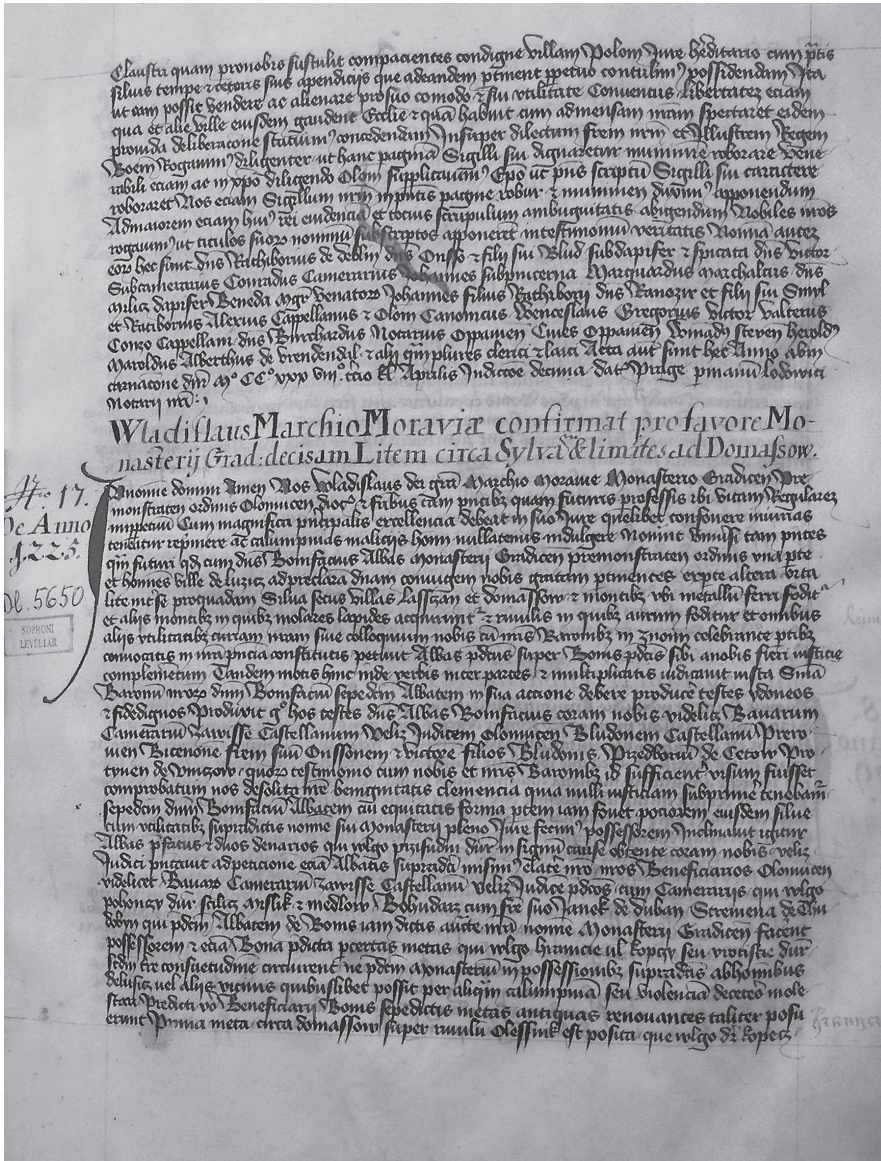 Claustri quam pronobis sustulit compacientes condigne villam Polom Jure hẽditario cum
siluis tempe & ceteris suis apendicijs que adeandem ptinent ppetuo contulim possidendam Ita
ut eam possit vendere ac alienare pro suo comodo & sui utilitate Conventus libertatez eciam
qua et alie ville eiusdem gaudent Ecclie & quã habuit cum admensam nrãm spectaret eidem
provida deliberacone concedendam Insuper dilectum frem nrm et Illustrem Regem
Boem̃ Rogamus diligenter ut hanc paginã Sigilli sui dignaretur munimine roborare Vene
rabili eciam ac in xpõ diligendo Olom̃ supplicavim Epõ ut pns scriptũ Sigilli sui caractere
roboraret Nos eciam Sigillum nrm pagine robur & munimen apponendum
Admaiorem eciam hui rei evidenciã et tocius scrupulum ambiguitatis abigendum Nobiles nros
rogavim ut titulos suoro nominũ subscriptos apponerent intestimoniũ veritatis Nomina autez
eoro hec sunt dns Rathiborius de deblin dns Onsso & filij sui Blud subdapifer & dns victor
Subcamerarius Conradus Camerarius Johannes subpincerna Marquardus Marchalcus dns
milicz dapifer Beneda Mgr Venatoro Johannes filius Rathiborij dns Ranozir et filij sui Smyl
et Ratiborius Alexius Capellanus & Olom̃ Canonicus Wenceslaus Gregorius Victor Valterus
Conzo Cappellani dns Burchardus Notarius Oppavien̄ Cives Oppavien̄ steven herold
Maroldus Alberthus de vrendendal & alij qm plures clerici & laici Acta aut sunt hec Anno abin
carnacone dni Mº CCº xxx viiiº tcio kl Aprilis Indictoe decima datº Prage p manũ lodowici
Notarii nri
Wladislaus Marchio Moraviæ confirmat pro favore Mo-
nasterij Grad: decisam Litem circa Sylvã & limites ad Domassow.
№ 17.
De Anno
1225.
Dl. 5650
SOPRONI
LEVÉLTÁR
Innomine domini Amen Nos Wladislaus dei grã Marchio Moravie Monasterio Gradicen̄ Pre
monstraten̄ ordinis Olomucen̄ dioc & fribus tam pntibz quam futuris professis ibi vitam Regularez
inppetuũ Cum magnifica pncipalis excellencia debeat in suo Jure quelibet confovere iniurias
teneatur repmere ac calumpnias maliciis hominũ nullatenus indulgere Noverint universi tam pntes
qm futuri qd cum dns Bonifacius Abbas Monasterij Gradicen̄ premonstraten̄ ordinis una pte
et homines ville deluzicz adpreclarã dnam coniugem nobis gratam ptinentes expte altera orta
lite int se proquadam Silva secus villas Lasstzan et domassow & montibz ubi metallũ ferri fodit
et alijs montibz in quibz molares lapides accipiunt & rivulis in quibz aurum foditur et omnibus
alijs utilitatibz curiam nrãm sive colloquium nobis cũ nris Baronibz in znoim celebrante ptibz
convocatis in nrã pncia constitutis petivit Abbas pdcus super Bonis pdcis sibi anobis fieri iusticie
complementum Tandem motis hinc inde verbis inter partes & multiplicatis iudicavit iusta Smã
Baronũ nroro dnm Bonifaciũ sepedcm Abbatem in sua accione debere producere testes ydoneos
& fidedignos Produxit gº hos testes dns Abbas Bonifacius coram nobis videlicz Bavarum
Camerariũ Zavisse Castellanum Veliz Judicem Olomucen̄ Bludonem Castellanũ Prero
vien̄ Bicenone frem suũ Onssonem & victore filios Bludonis Przedborũ de Cetow Pro
tyven de vniczow quoro testimonio cum nobis et nris Baronibz id sufficient visum fuisset
comprobatum nos desolita nre benignitatis clemencia quia nulli iusticiam subprime tenebam
sepedcm dnm Bonifaciũ Abbatem cũ equitatis forma ptem iam fovet pociorem eiusdem silve
cum utilitatibz supradictis nomine sui Monasterij pleno Jure fecim possessorem Inclinavit igitur
Abbas pfatus & duos denarios qui wlgo przisudni dñr in signũ cause obtente coram nobis veliz
Judici ad peticione eciã Abbatis supradci misim elate nro nros Beneficiarios Olomucen̄
videlicet Bavaro Camerariũ Zavisse Castellanũ Veliz Judice pdcos cum Camerarijs qui wlgo
pohonczy dñr scilicz mrslik & medlow Bohudarz cum fre suo Janek de duban Stremena de
dobyn qui pdcm Abbatem de Bonis iam dictis auctte nrã nomine Monasterij Gradicen̄ facent
possessorem & eciã Bona pdicta pcertas metas qui wlgo hranicie ul kopczy seu dñr
scdm tre consuetudinem circuirent ne pdcm Monasteriũ in possessionibz supradcis abhominibus
deluzicz vel alijs vicinis quibuslibet possit per aliqm calumpniã seu violenciã decetero mole
stari Predicti vo Beneficiarii Bonis sepedictis metas antiquas renovantes taliter posu
erunt Prima meta circa domassow super rivulũ Olessnik est posita que wlgo dr kopecz